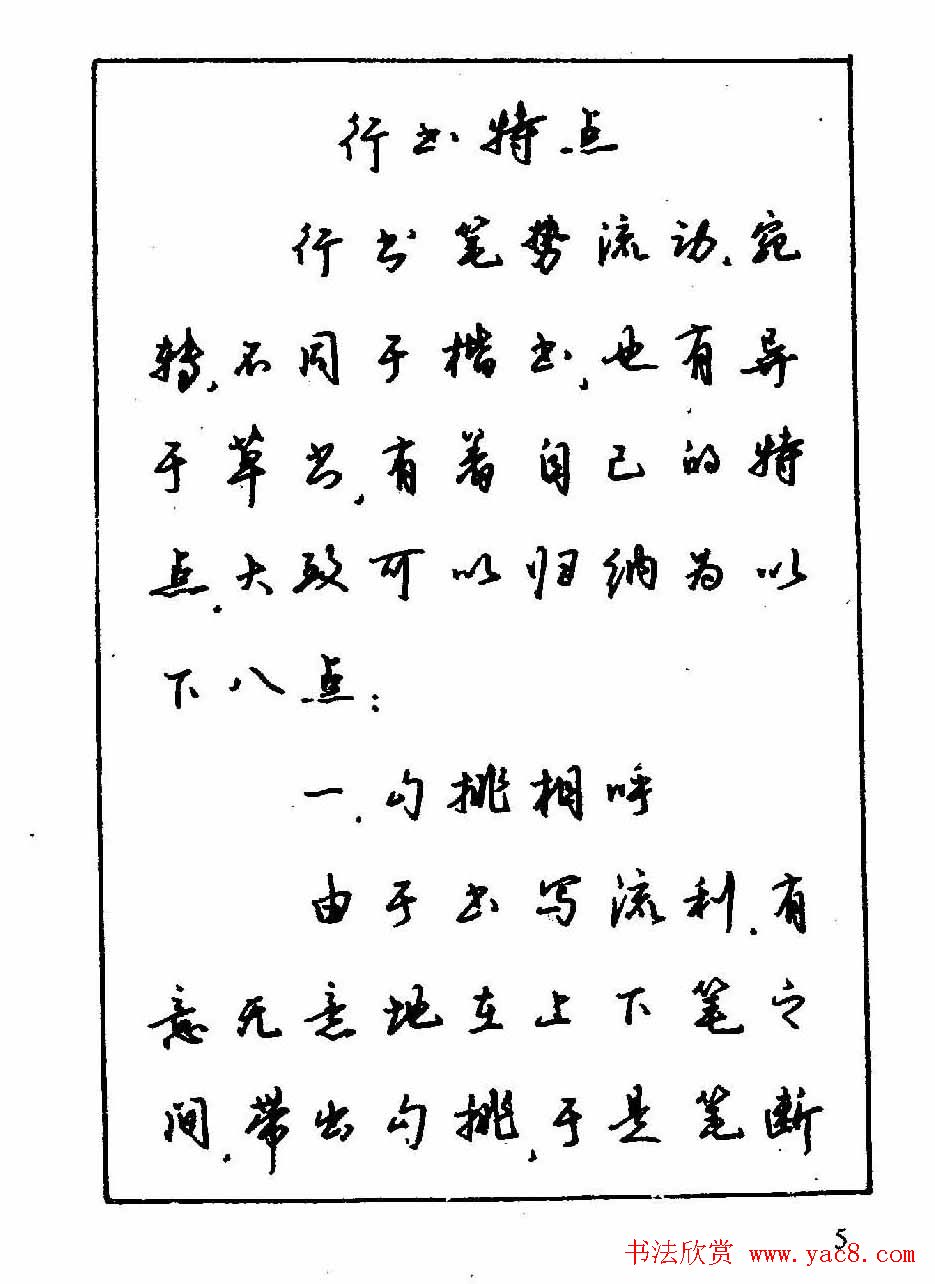 行书特点
行书笔势流动,宛
转,不同于楷书,也有异
于草书,有着自己的特
点,大致可以归纳为以
下八点:
一,勾挑相呼
由于书写流利,有
意无意地在上下笔之
间,带出勾挑,于是笔断
5
书法欣赏 www.yac8.com